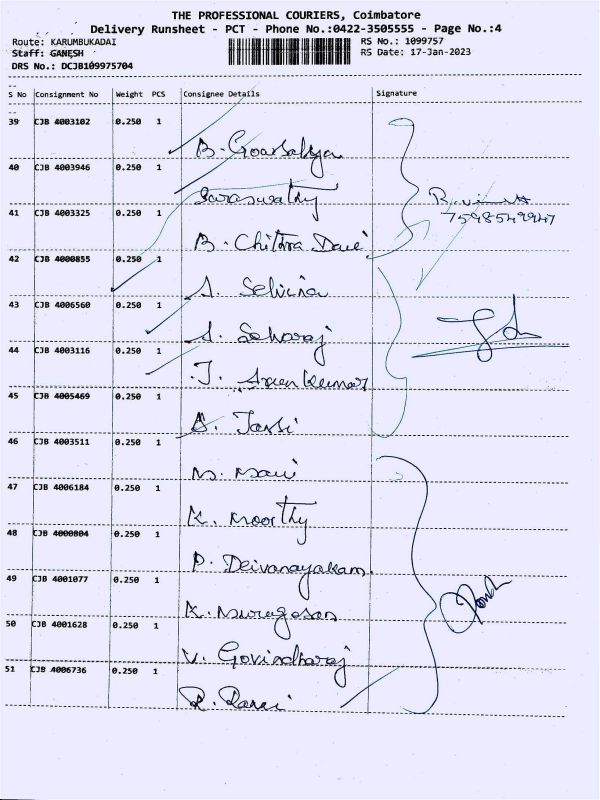 THE PROFESSIONAL COURIERS, Coimbatore
Delivery Runsheet - PCT - Phone No.:0422-3505555 - Page No.:4
Route: KARUMBUKADAI RS No.: 1099757
Staff: GANESH RS Date: 17-Jan-2023
DRS No.: DCJB109975704
S No Consignment No Weight PCS Consignee Details Signature
39 CJB 4003102 0.250 1
B.
40 CJB 4003946 0.250 1
Saraswathy
41 CJB 4003325 0.250 1
7598549947
B. Chithra Devi
42 CJB 4000855 0.250 1
A. Selvina
43 CJB 4006560 0.250 1
A. Selvaraj
44 CJB 4003116 0.250 1
J. Arun Kumar
45 CJB 4005469 0.250 1
A. Jansi
46 CJB 4003511 0.250 1
M. Mani
47 CJB 4006184 0.250 1
K. Moorthy
48 CJB 4000804 0.250 1
P. Deivanayakam.
49 CJB 4001077 0.250 1
K. Murugesan
50 CJB 4001628 0.250 1
V. Govindharaj
51 CJB 4006736 0.250 1
R.